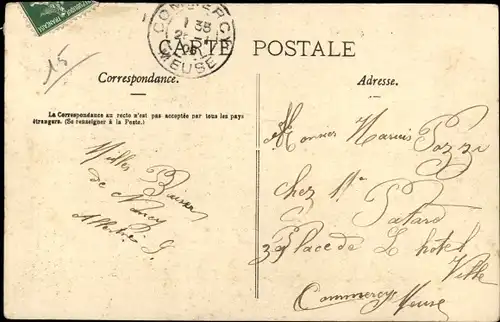 COMMERCY
MEUSE
15
CARTE POSTALE
Correspondance.
Adresse.
La Correspondance au recto n'est pas acceptée par tous les pays
étrangers. (Se renseigner à la Poste.)
Milles Baisers
de Nancy
Monsieur Pozzi
chez Mr
Patard
Place de L hotel
Ville
Commercy Meuse